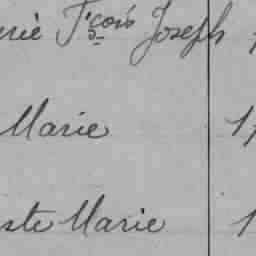 rie Fçois Joseph
Marie 1
ste Marie 1